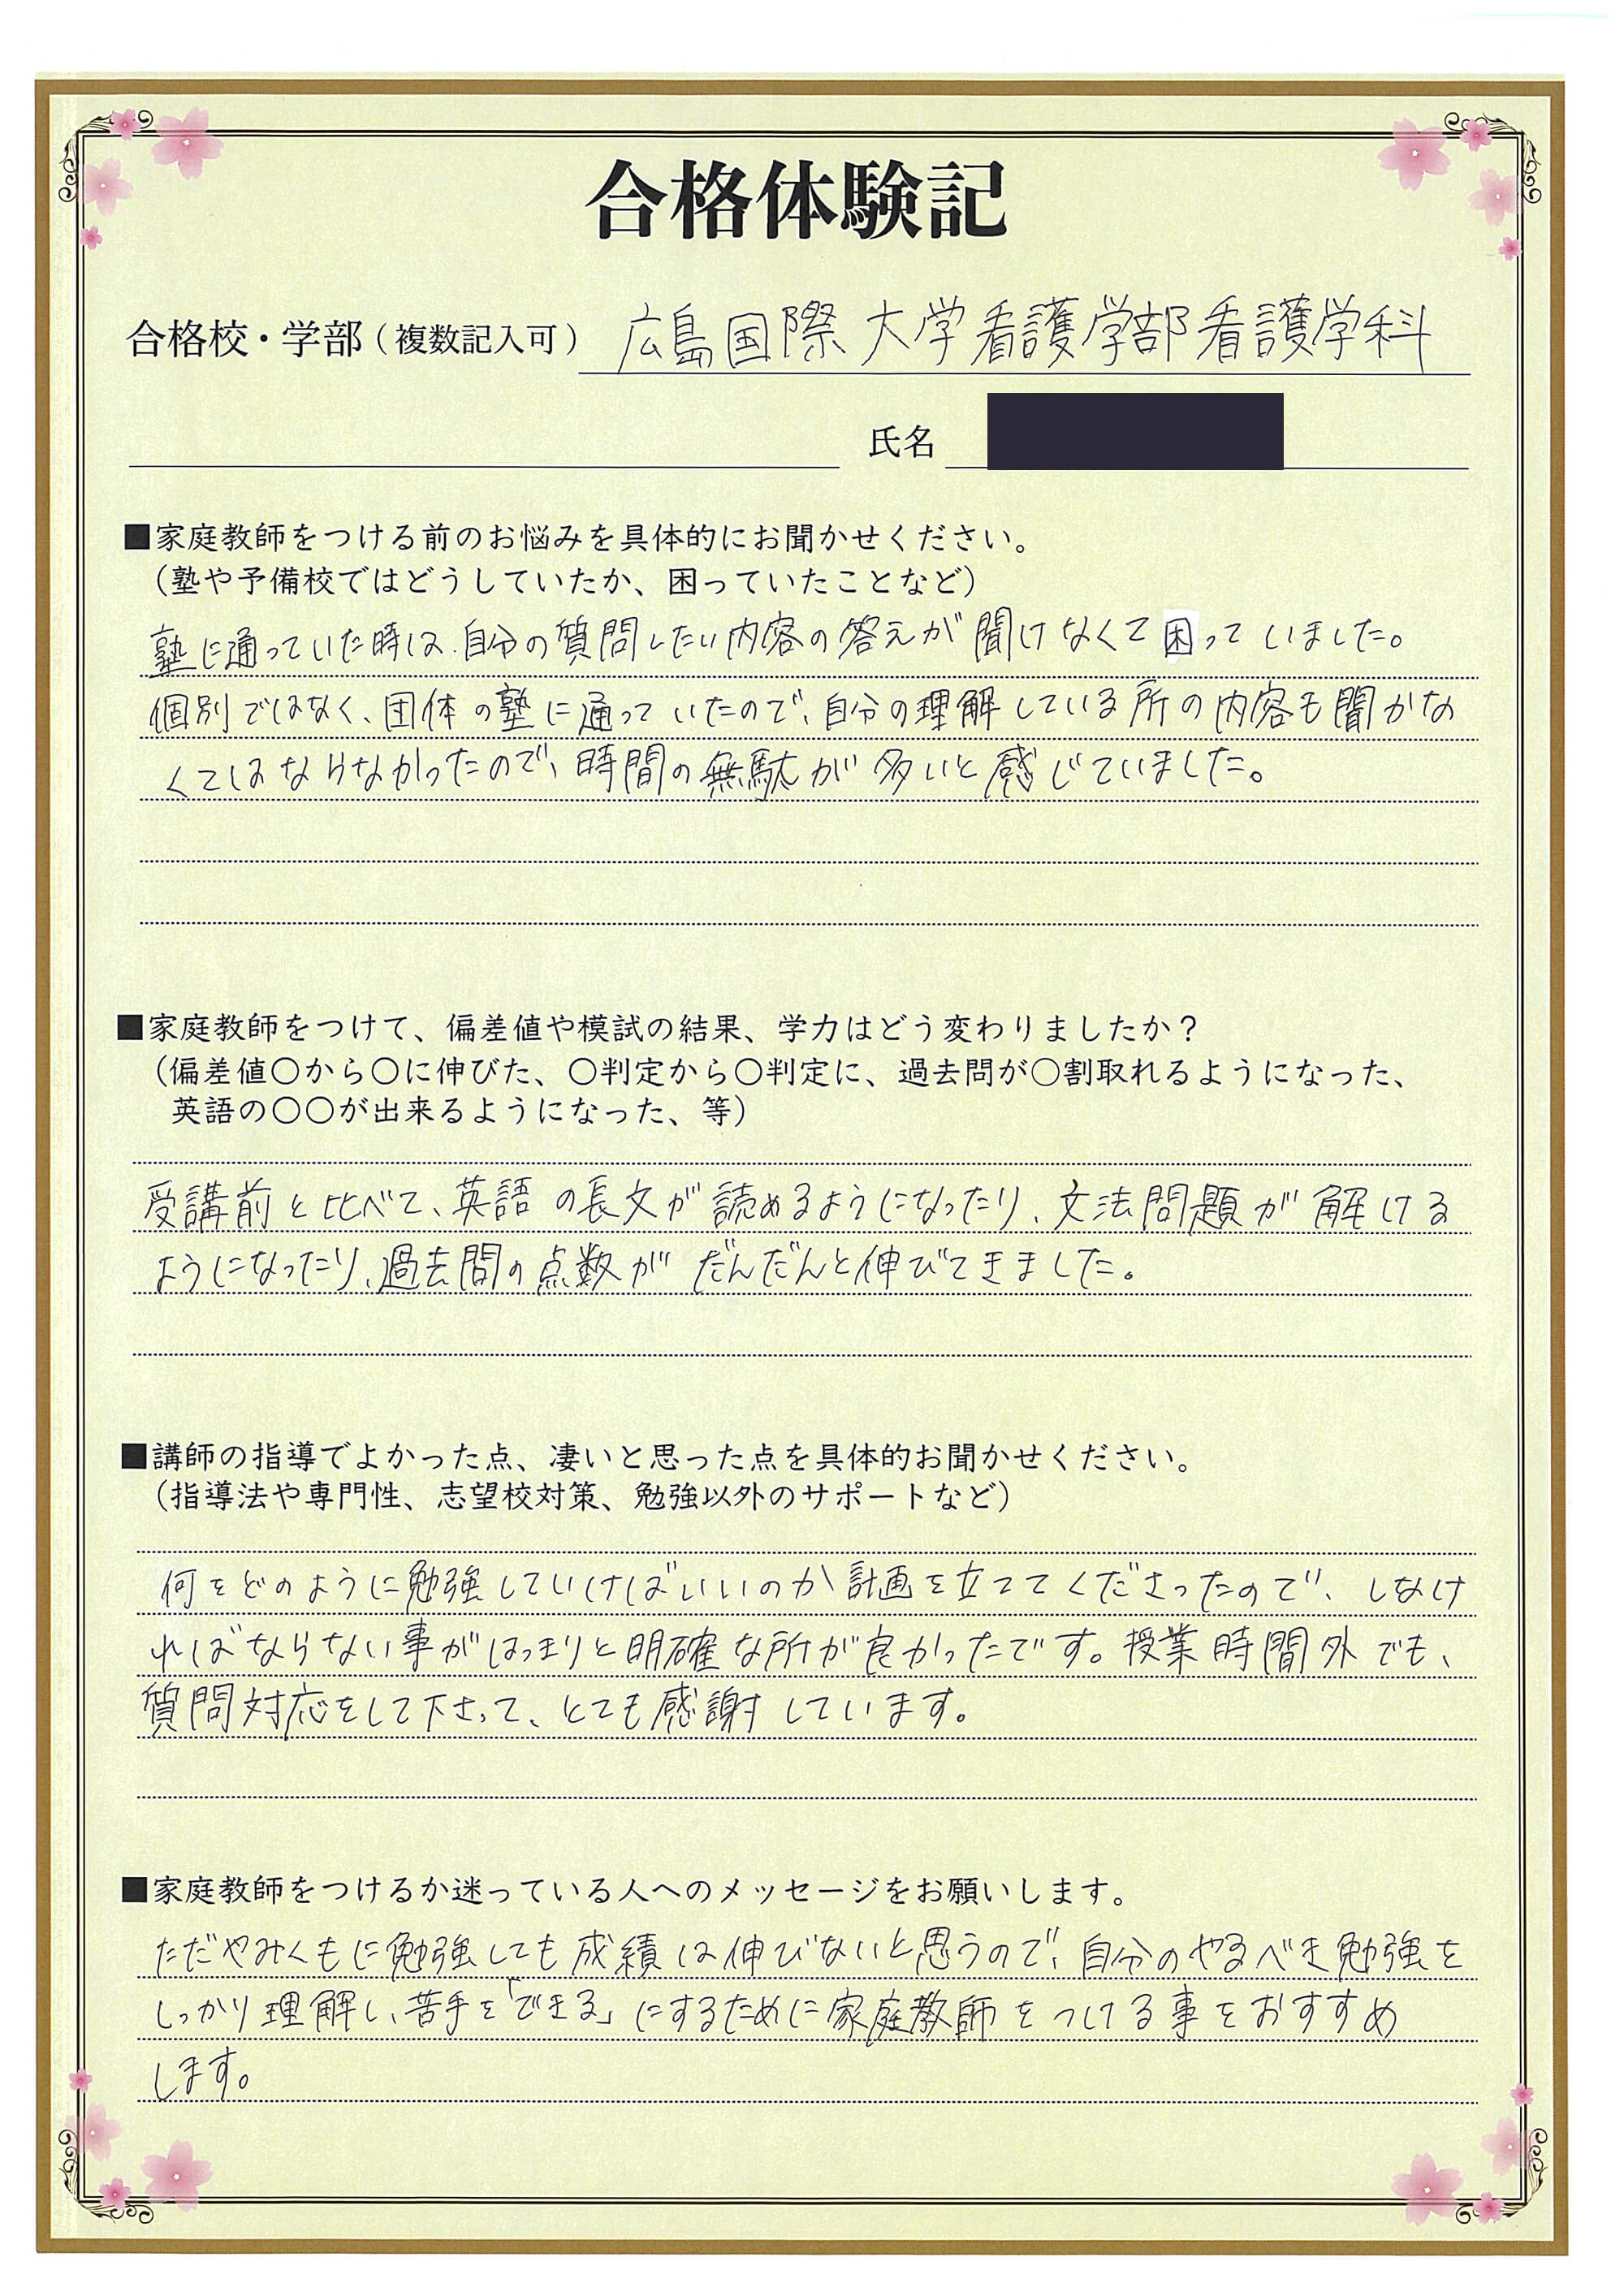 合格体験記
合格校・学部（複数記入可） 広島国際大学看護学部看護学科
氏名
■家庭教師をつける前のお悩みを具体的にお聞かせください。
（塾や予備校ではどうしていたか、困っていたことなど）
塾に通っていた時は、自分の質問したい内容の答えが聞けなくて困っていました。
個別ではなく、団体の塾に通っていたので、自分の理解している所の内容も聞かな
くてはならなかったので、時間の無駄が多いと感じていました。
■家庭教師をつけて、偏差値や模試の結果、学力はどう変わりましたか？
（偏差値〇から〇に伸びた、〇判定から〇判定に、過去問が〇割取れるようになった、
英語の〇〇が出来るようになった、等）
受講前と比べて、英語の長文が読めるようになったり、文法問題が解ける
ようになったり、過去問の点数がだんだんと伸びてきました。
■講師の指導でよかった点、凄いと思った点を具体的お聞かせください。
（指導法や専門性、志望校対策、勉強以外のサポートなど）
何をどのように勉強していけばいいのか計画を立ててくださったので、しなけ
ればならない事がはっきりと明確な所が良かったです。授業時間外でも、
質問対応をして下さって、とても感謝しています。
■家庭教師をつけるか迷っている人へのメッセージをお願いします。
ただやみくもに勉強しても成績は伸びないと思うので、自分のやるべき勉強を
しっかり理解し、苦手を「できる」にするために家庭教師をつける事をおすすめ
します。